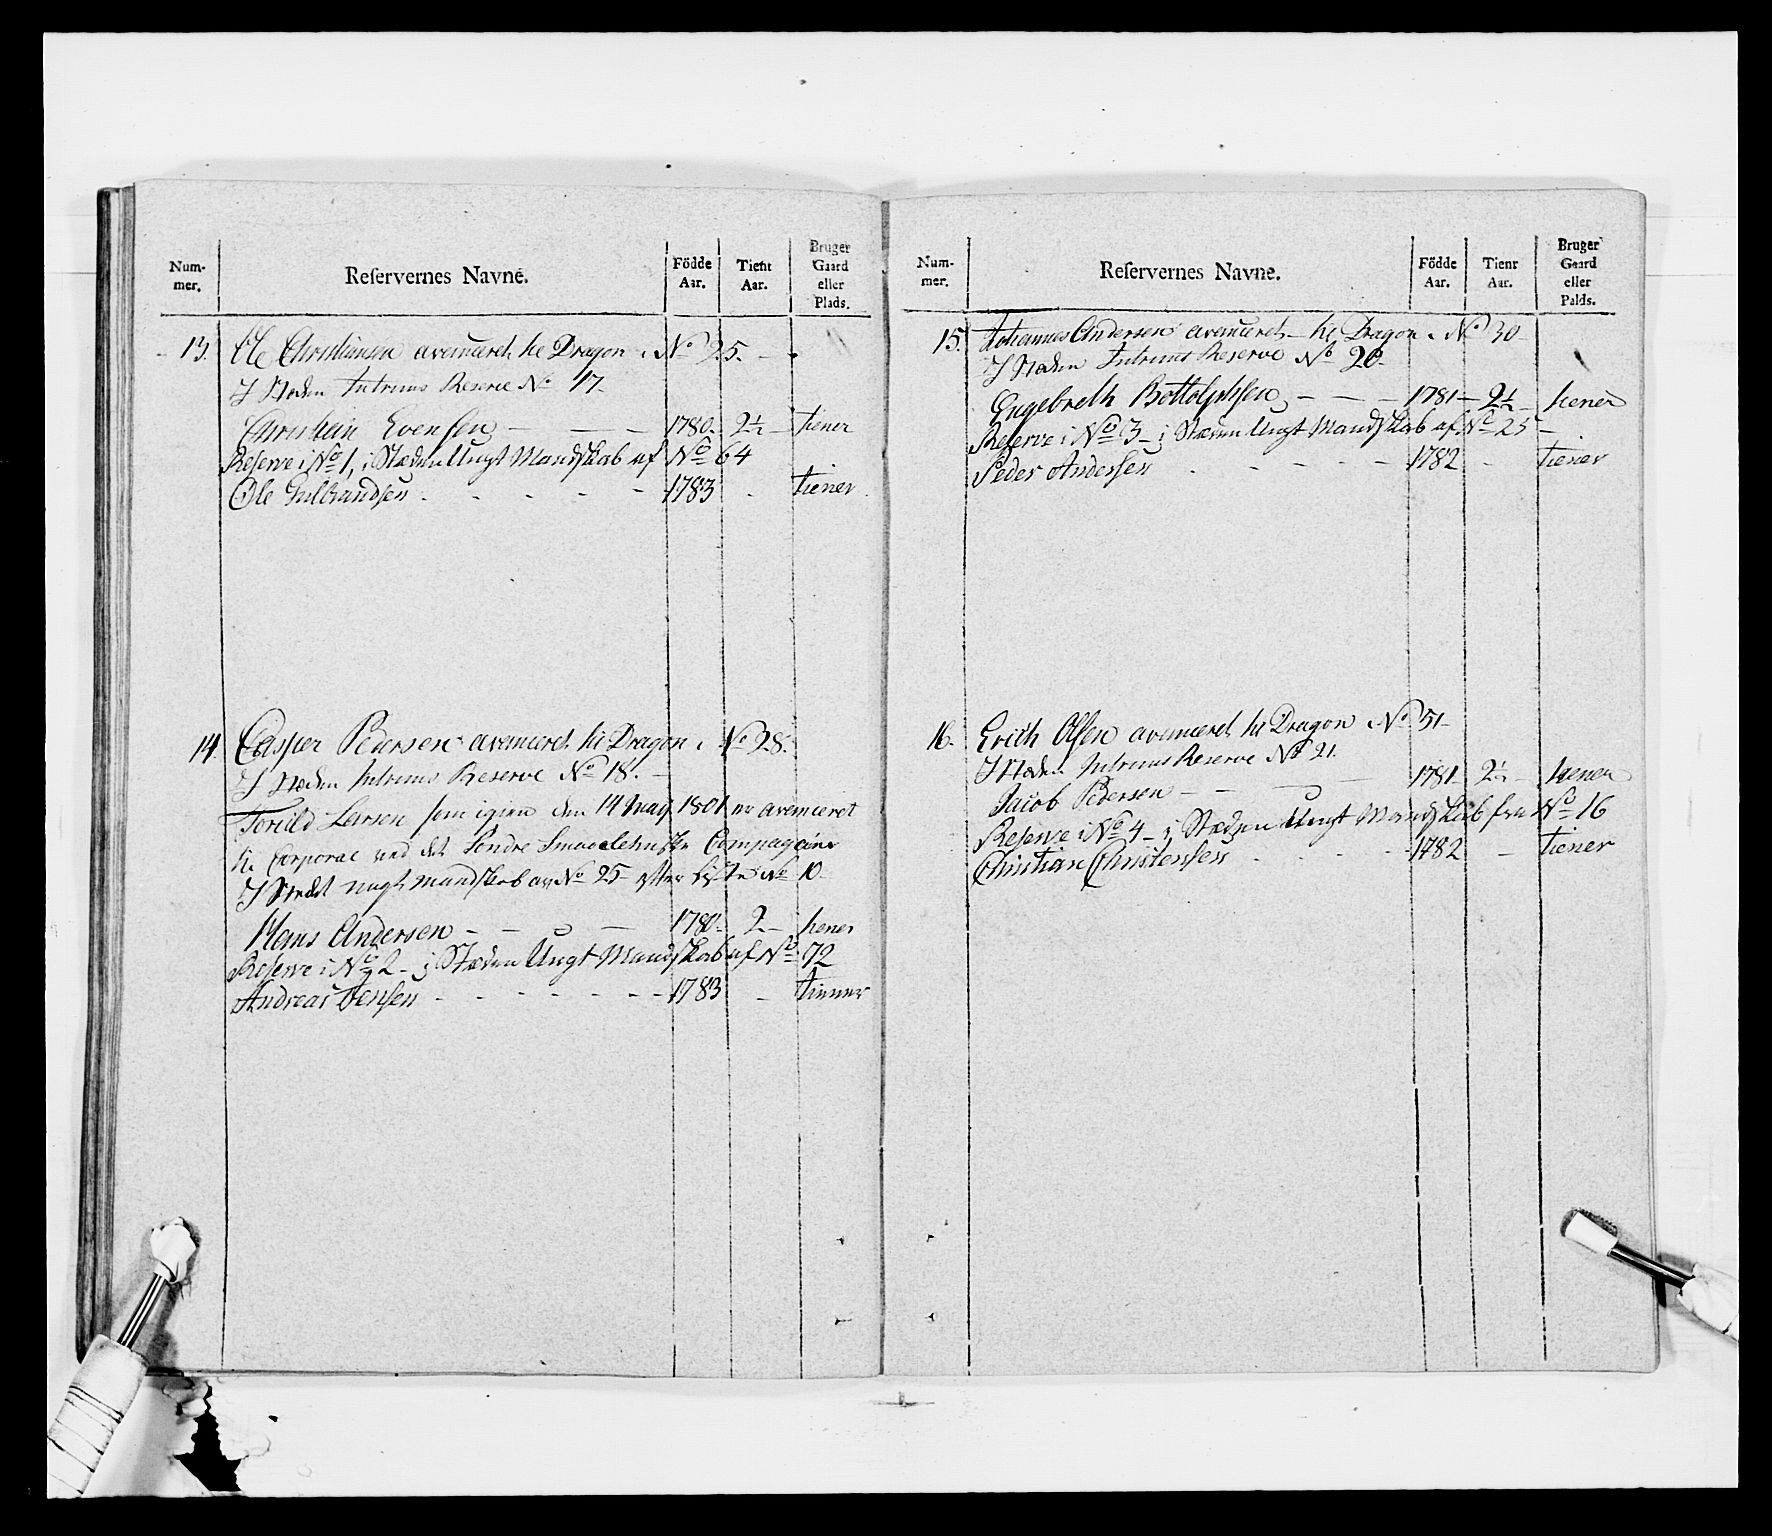 Num-
mer.
Reservernes Navne.
Födde
Aar.
Tient
Aar.
Bruger
Gaard
eller
Plads.
13. Ole Christiansen avenceret til Dragon i No 25.
I Stæden Intrims Reserve No 17.
Christian Evensen 1780. 2½ tiener
Reserve i No 1, i Stæden Ungt Mandskab af No 64
Ole Gulbrandsen 1783 tiener
14. Casper Pedersen avenceret til Dragon i No 28.
I Stæden Intrims Reserve No 18.
Larsen som igien den 14 May 1801 er avenceret
til Corporal ved det Søndre Smaalehnske Compagnie
I Stædet ungt mandskab av No 25 efter No 10
Hans Andersen 1780. 2 tiener
Reserve i No 2 i Stæden Ungt Mandskab af No 72
Andreas Jensen 1783 tiener
Num-
mer.
Reservernes Navne.
Födde
Aar.
Tienr
Aar.
Bruger
Gaard
eller
Palds.
15. Johannes Andersen avenceret til Dragon i No 30
I Stæden Intrims Reserve No 20.
Engebreth Bottolphsen 1781 2½ tiener
Reserve i No 3 i Stæden Ungt Mandskab af No 25
Peder Andersen 1782 tiener
16. Erich Olsen avenceret til Dragon i No 51
I Stæden Intrims Reserve No 21.
Jacob Pedersen 1781 2½ tiener
Reserve i No 4 i Stæden Ungt Mandskab fra No 16
Christian Christensen 1782 tiener